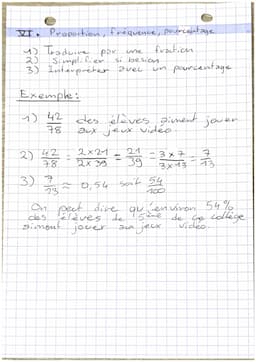 VI. Proportion, fréquence, pourcentage
1) Traduire par une fraction
2) Simplifier si besoin
3) Interpréter avec un pourcentage
Exemple:
1) 42/78 des élèves aiment jouer aux jeux vidéo
2) 42/78 = 2x21/2x39 = 21/39 = 3x7/3x13 = 7/13
3) 7/13 ≈ 0,54 soit 54/100
On peut dire qu'environ 54%
des élèves de 5ème de ce collège
aiment jouer aux jeux vidéo.